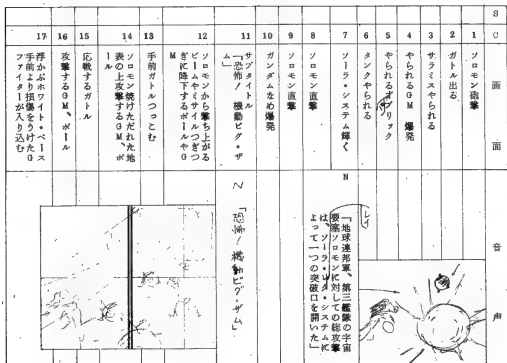 S
C 画面 音声
1 ソロモン砲撃
2 ガトル出る
3 サラミスやられる
4 やられるGM 爆発
5 やられるオブリック
パ
6 タンクやられる
7 ソーラ・システム輝く
N
「地球連邦軍、第三艦隊の宇宙
要塞ソロモンに対しての総攻撃
は、ソーラ・システムに
レイ
よって一つの突破口を開いた」
8 ソロモン直撃
9 ソロモン直撃
10 ガンダムなめ爆発
11 サブタイトル
「恐怖!機動ビグ・ザ
ム」
N 「恐怖!機動ビグ・ザム」
12 ソロモンから撃ち上がる
ビームやミサイルつぎつ
ぎに降下するボールやG
M
13 手前ガトルつっこむ
14 ソロモン焼けただれた地
表の上攻撃するGM、ボ
ール
15 応戦するガトル
16 攻撃するGM、ボール
17 浮かぶホワイト・ベース
手前より損傷をうけたG
ファイターが入り込む